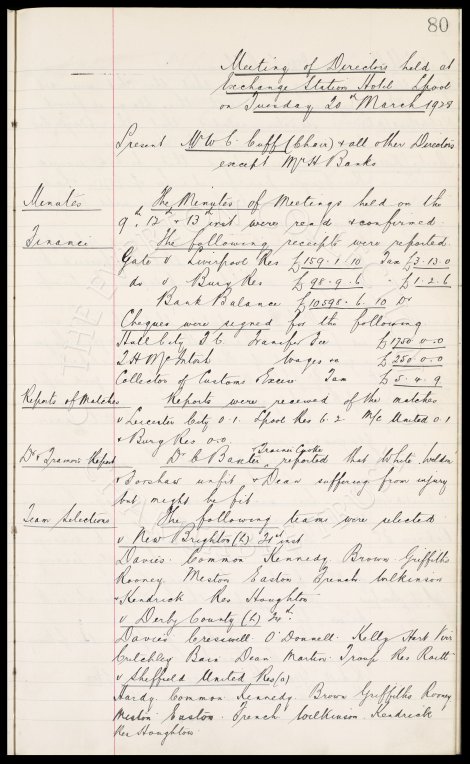 80
Meeting of Directors held at
Exchange Station Hotel Lpool
on Tuesday 20th March 1928
Present Mr W C. Cuff (Chair) & all other Directors
except Mr H Banks
Minutes The Minutes of Meetings held on the
9th, 12th & 13th inst were read & confirmed.
Finance The following receipts were reported.
Gate v Liverpool Res £159.1.10 Tax £3.13.0
do v Bury Res £98.9.6 " £1.2.6
Bank Balance £10598.6.10 Dr
Cheques were signed for the following
Hull City F C. Transfer Fee £1750.0.0
T H McIntosh Wages £250.0.0
Collector of Customs & Excise Tax £5.4.9
Reports of Matches Reports were received of the matches
v Leicester City 0.1. Lpool Res 6.2 M/c United 0.1
& Bury Res 0.0
Dr & Trainers Report Dr C Baxter Trainer Cooke reported that White, Weldon
& Forshaw unfit & Dean suffering from injury
but might be fit
Team Selections The following teams were selected
v New Brighton (L) 21st inst
Davies. Common. Kennedy. Brown. Griffiths
Rooney. Meston. Easton. French. Wilkinson
& Kendrick Res Houghton
v Derby County (L) 24th.
Davies. Cresswell. O'Donnell. Kelly Hart Virr
Critchley Bain. Dean Martin. Troup Res Raitt
v Sheffield United Res (a)
Hardy. Common. Kennedy. Brown Griffiths Rooney
Meston. Easton. French Wilkinson. Kendrick
Res Houghton